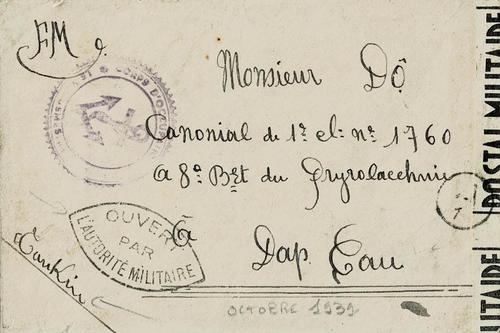 FM
Monsieur Dộ
Canonial de 1e cl: nº 1760
à 8e Bet du Pryrolacchnie
à
Dap Cau
Tonkin
OUVERT
PAR
L'AUTORITÉ MILITAIRE
OCTOBRE 1939
POSTAL MILITAIRE
ITAIRE